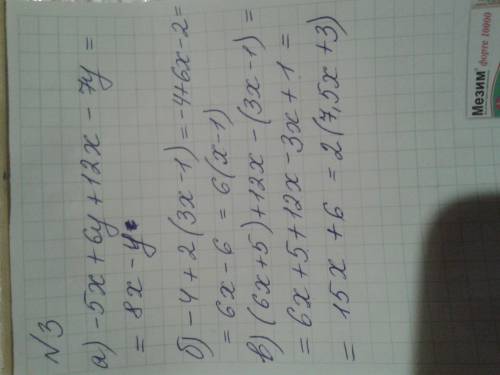 N3
а) -5x+6y+12x-7y=
= 8x-y
б) -4+2(3x-1)=-4+6x-2=
= 6x-6 = 6(x-1)
в) (6x+5)+12x-(3x-1)=
= 6x+5+12x-3x+1=
= 15x+6 = 2(7,5x+3)
Мезим® форте 10000